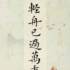 輕舟已過萬